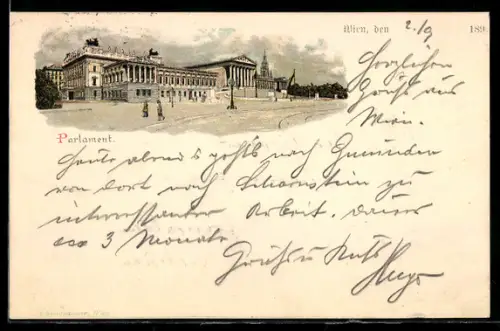 Wien, den 2./9 189
Herzlichen
Gruß aus
Wien.
Parlament.
Heute abends geht's nach Gmunden
von dort nach Scharnstein zu
interessanter Arbeit. dauer
ca 3 Monate
Gruß u Kuß
Hugo